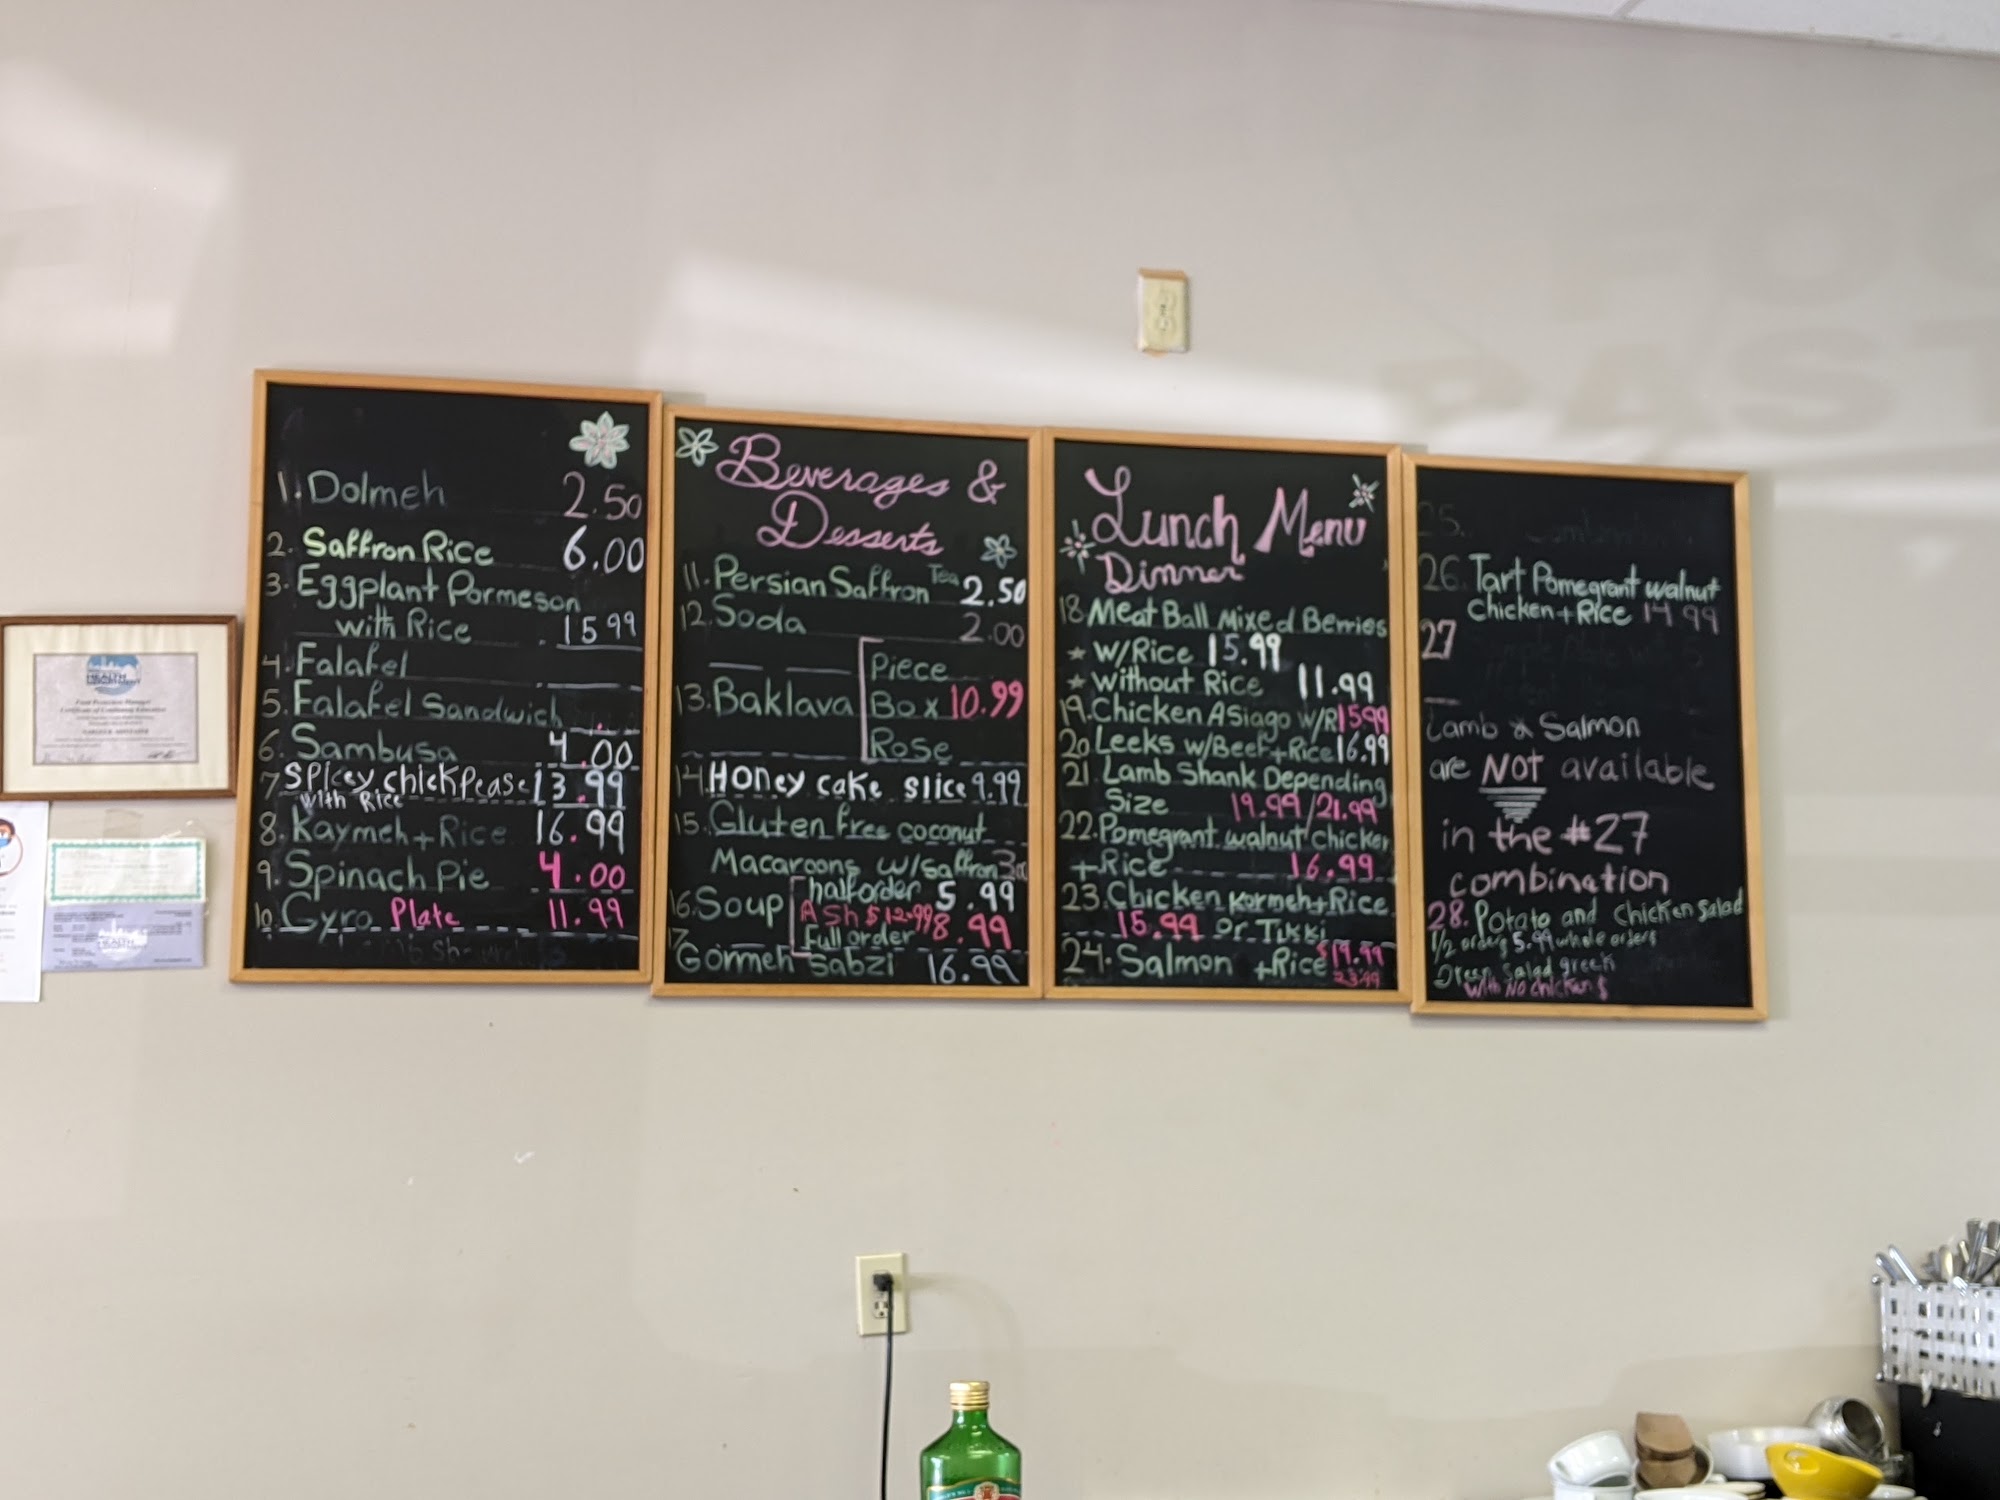 1. Dolmeh 2.50
2. Saffron Rice 6.00
3. Eggplant Parmeson
with Rice 15 99
4. Falafel
5. Falafel Sandwich
6. Sambusa 4.00
7 Spicey chickpease 13.99
with Rice
8. Kaymeh + Rice 16.99
9. Spinach Pie 4.00
10. Gyro Plate 11.99
Beverages &
Desserts
11. Persian Saffron Tea 2.50
12. Soda 2.00
Piece
13. Baklava Box 10.99
Rose
14. Honey cake slice 9.99
15. Gluten free coconut
Macaroons w/saffron
half order 5.99
16. Soup Ash $12.99 8.99
full order
17
Gormeh Sabzi 16.99
Lunch Menu
Dinner
18. Meat Ball Mixed Berries
w/Rice 15.99
without Rice 11.99
19. Chicken Asiago w/R 15 99
20 Leeks w/Beef+Rice 16.99
21 Lamb Shank Depending
Size 19.99/21.99
22. Pomegrant walnut chicken
+Rice 16.99
23. Chicken Kormeh+Rice
15.99 Or Tikki
24. Salmon +Rice $19.99
23.99
25.
26. Tart Pomegrant walnut
chicken+Rice 14 99
27
Lamb & Salmon
are NOT available
in the #27
combination
28. Potato and chicken salad
1/2 orders 5.99 whole orders
Green Salad greek
with No chicken
HEALTH
Food Protection Manager
Certificate of Continuing Education
PAST